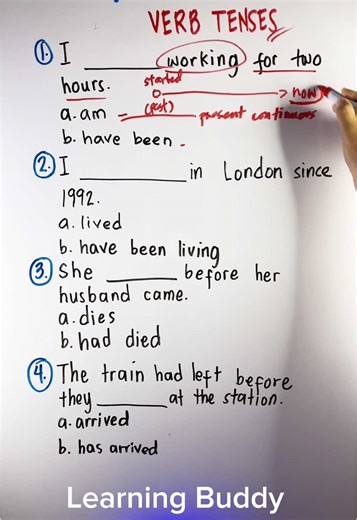 VERB TENSES
1. I ________ working for two
hours. started
(past) now
a. am = present continuous
b. have been
2. I ________ in London since
1992.
a. lived
b. have been living
3. She ________ before her
husband came.
a. dies
b. had died
4. The train had left before
they ________ at the station.
a. arrived
b. has arrived
Learning Buddy